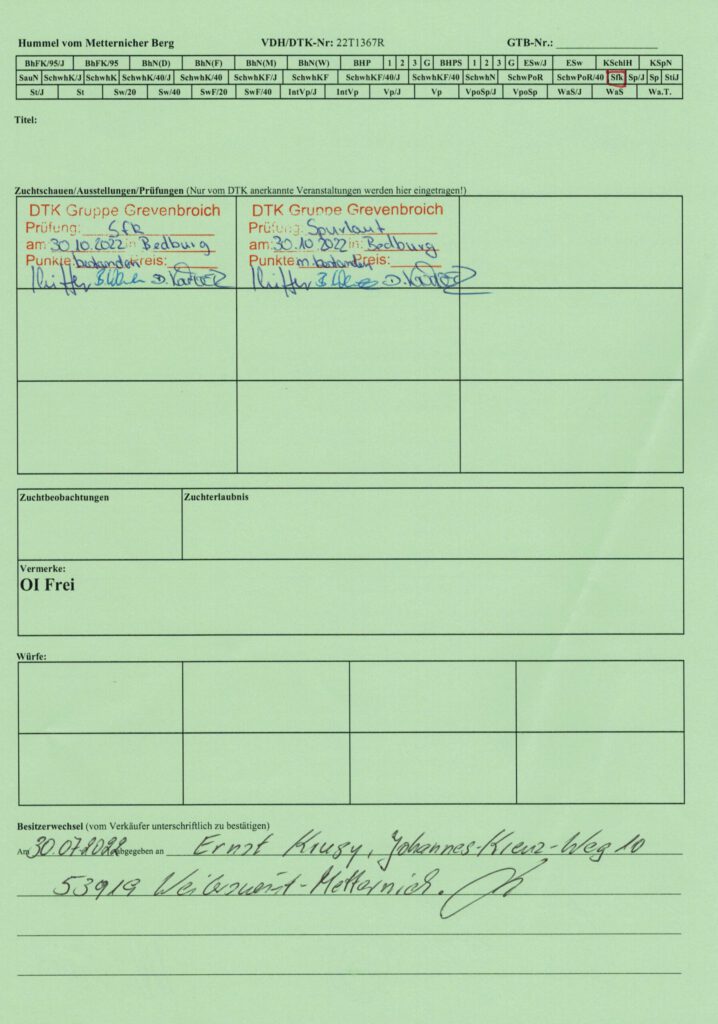 Hummel vom Metternicher Berg VDH/DTK-Nr: 22T1367R GTB-Nr.:
BhFK/95/J BhFK/95 BhN(D) BhN(F) BhN(M) BhN(W) BHP 1 2 3 G BHPS 1 2 3 G ESw/J ESw KSchlH KSpN
SauN SchwhK/J SchwhK SchwhK/40/J SchwhK/40 SchwhKF/J SchwhKF SchwhKF/40/J SchwhKF/40 SchwhN SchwPoR SchwPoR/40 Sfk Sp/J Sp StiJ
St/J St Sw/20 Sw/40 SwF/20 SwF/40 IntVp/J IntVp Vp/J Vp VpoSp/J VpoSp WaS/J WaS Wa.T.
Titel:
Zuchtschauen/Ausstellungen/Prüfungen (Nur vom DTK anerkannte Veranstaltungen werden hier eingetragen!)
DTK Gruppe Grevenbroich
Prüfung: Sfk
am 30.10.2022 in Bedburg
Punkte bestanden Preis:
DTK Gruppe Grevenbroich
Prüfung: Spurlaut
am 30.10.2022 in Bedburg
Punkte n. bestanden Preis:
Zuchtbeobachtungen
Zuchterlaubnis
Vermerke:
OI Frei
Würfe:
Besitzerwechsel (vom Verkäufer unterschriftlich zu bestätigen)
Am 30.07.2022 abgegeben an Ernst Krusy, Johannes-Kreuz-Weg 10
53919 Weilerswist-Metternich.